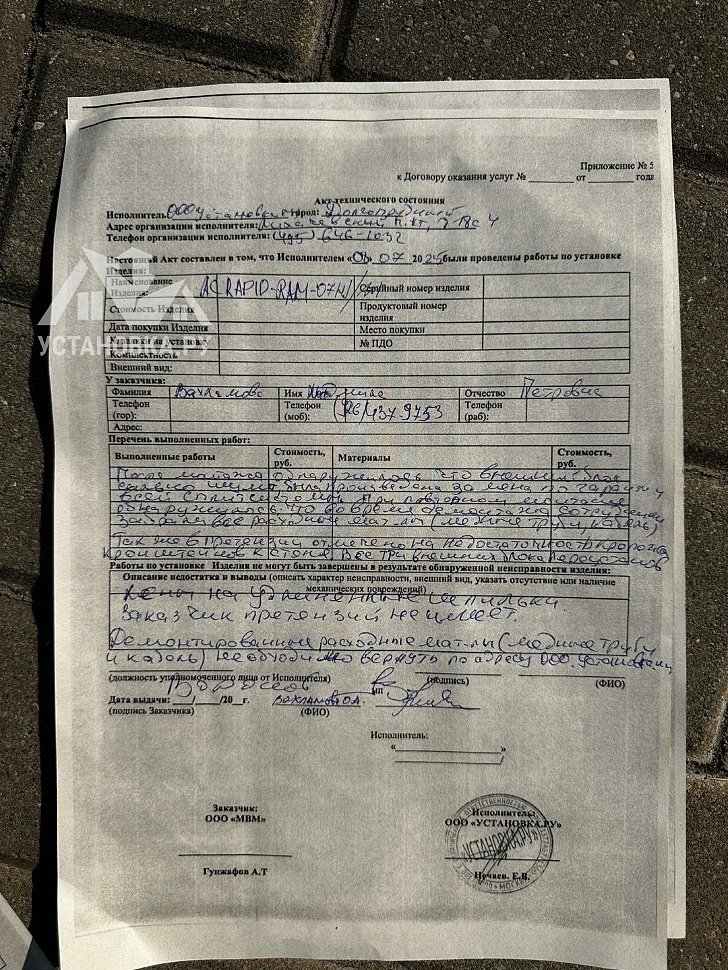 Приложение № 5
к Договору оказания услуг № ________ от ________ года
Акт технического состояния
Исполнитель: ООО Установка город: Долгопрудный
Адрес организации исполнителя: Лихачевский
Телефон организации исполнителя: (495) 646-1032
Настоящий Акт составлен в том, что Исполнителем «08» 07 20 25 были проведены работы по установке
Изделия:
Наименование Изделия: AC RAPID-RAM-07H Серийный номер изделия
Стоимость Изделия Продуктовый номер изделия
Дата покупки Изделия Место покупки
№ ПДО
Комплектность
Внешний вид:
УСТАНОВКА.РУ
У заказчика:
Фамилия Имя Отчество Петровна
Телефон (гор): Телефон (моб): Телефон (раб):
Адрес:
Перечень выполненных работ:
Выполненные работы Стоимость, руб. Материалы Стоимость, руб.
После монтажа обнаружилось что внешний блок
была произведена замена по гарантии
всей сплит системы. При повторном монтаже
обнаружилось что во время демонтажа сотрудники
забрали все расходные мат-лы (медные трубы, кабель)
Так же в претензии отмечено на недостаточность крепежа
кронштейнов к стене. Все три внешних блока переустанов
Работы по установке Изделия не могут быть завершены в результате обнаруженной неисправности изделия:
Описание недостатка и выводы (описать характер неисправности, внешний вид, указать отсутствие или наличие механических повреждений)
лены на удлиненные шпильки.
Заказчик претензий не имеет.
Демонтированные расходные мат-лы (медные трубы
и кабель) необходимо вернуть по адресу ООО Установка
(должность уполномоченного лица от Исполнителя) (подпись) (ФИО)
МП
Дата выдачи: ___/____/20__ г.
(подпись Заказчика) (ФИО)
Исполнитель:
Заказчик:
ООО «МВМ»
Гунжафов А.Т
Исполнитель:
ООО «УСТАНОВКА.РУ»
УСТАНОВКА.РУ
МОСКВА
Нечаев. Е.В.